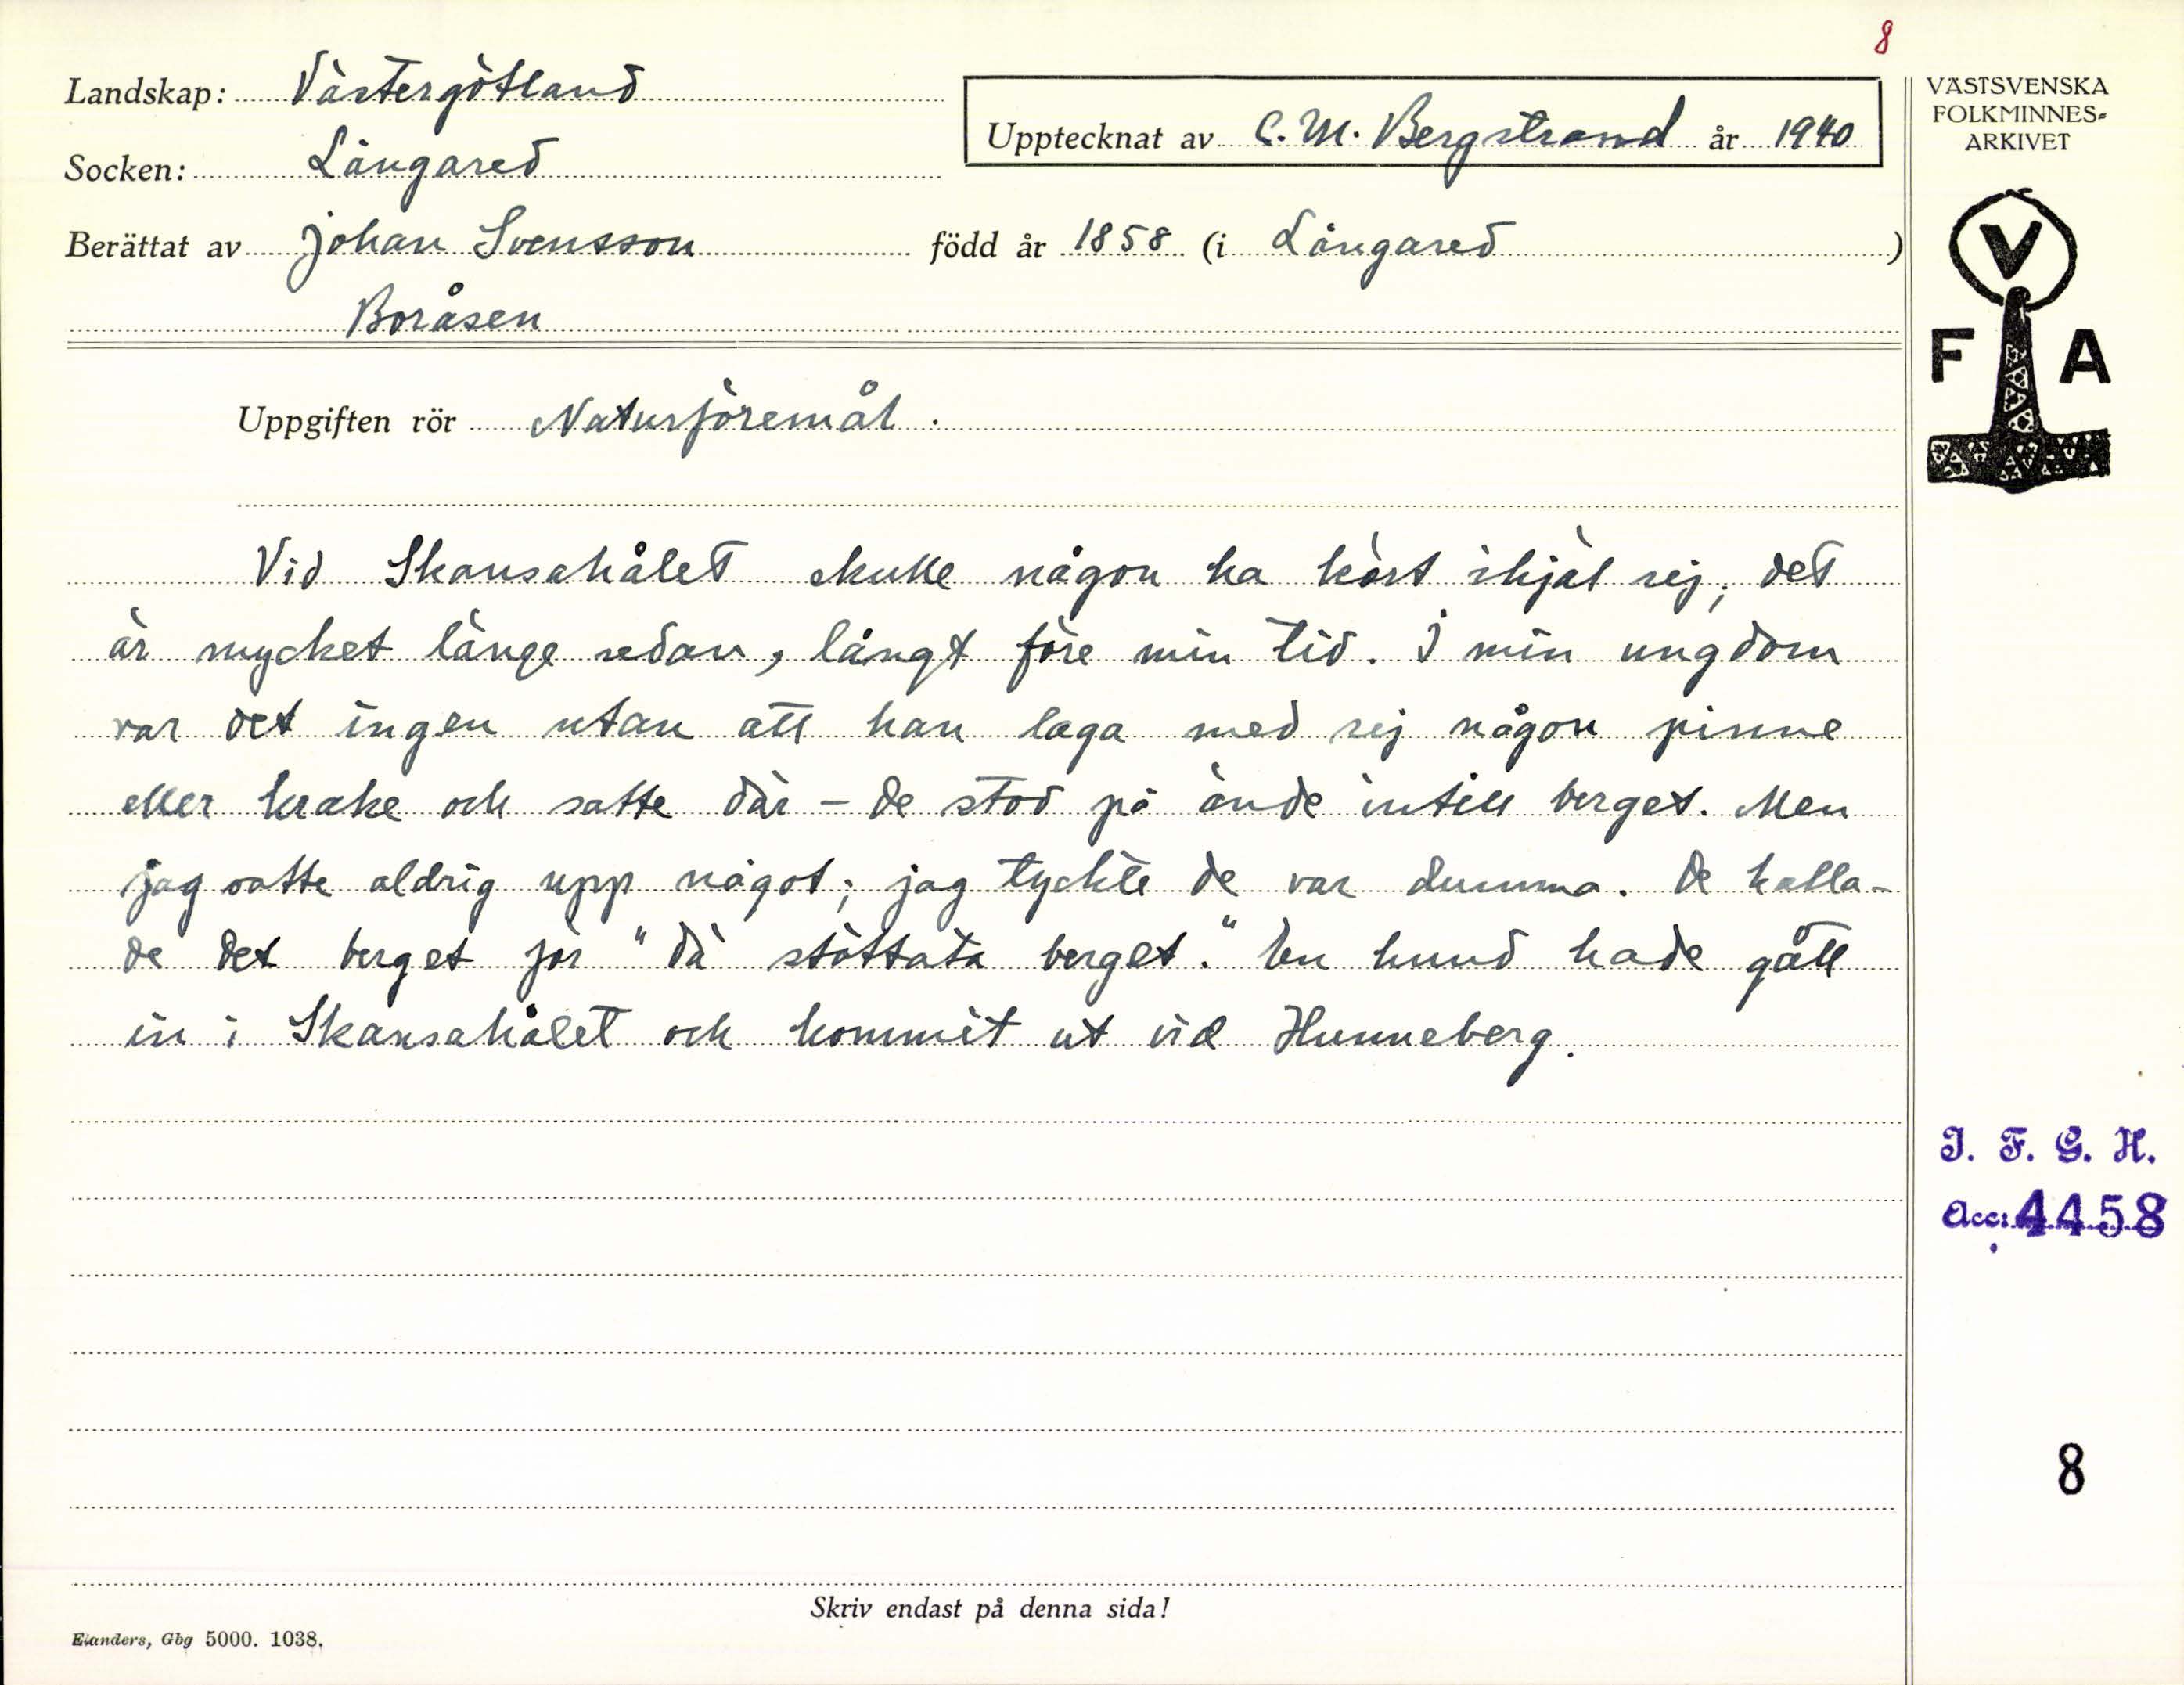 8
Landskap: Västergötland
Upptecknat av C. M. Bergstrand år 1940
Socken: Långared
Berättat av Johan Svensson född år 1858 (i Långared)
Boråsen
VÄSTSVENSKA
FOLKMINNES=
ARKIVET
V
F A
Uppgiften rör Naturföremål.
Vid Skansahålet skulle någon ha kört ihjäl sej; det
är mycket länge sedan, långt före min tid. I min ungdom
var det ingen utan att han laga med sej någon pinne
eller krake och satte där – de stod på ände intill berget. Men
jag satte aldrig upp något; jag tyckte de var dumma. De kalla-
de det berget för "dä stöttata berget." En hund hade gått
in i Skansahålet och kommit ut vid Hunneberg.
I. F. G. H.
Acc: 4458
8
Skriv endast på denna sida!
Elanders, Gbg 5000. 1038.